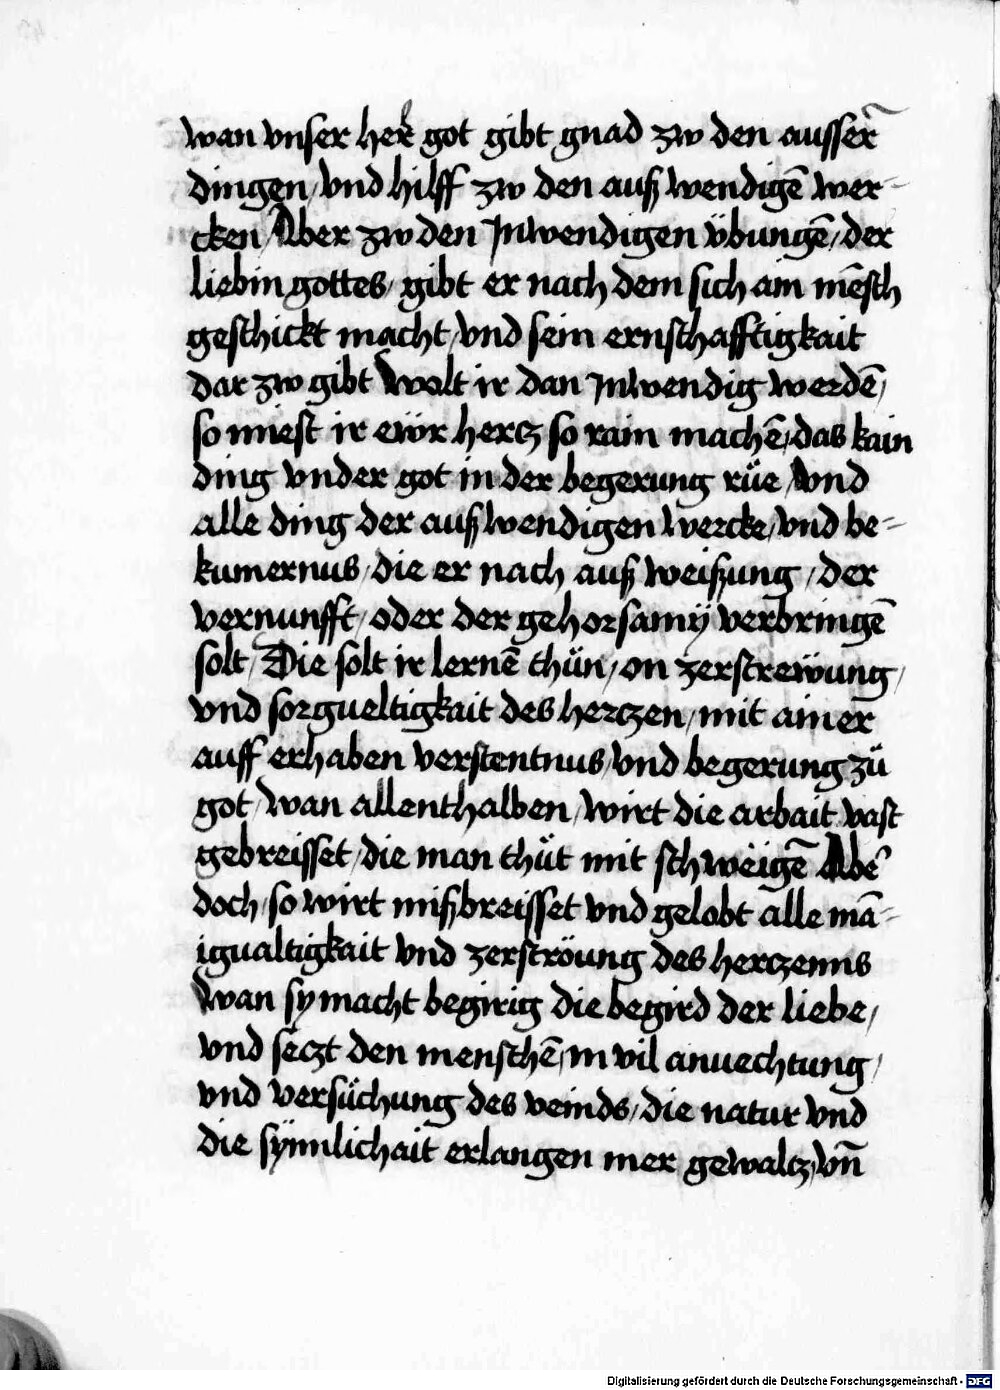 wan vnser her̃ got gibt gnad zw den ausser̃
dingen / vnd hilff zw den auß wendigē wer-
cken / Aber zw den Jnwendigen v̈bungē / der
lieb in gottes / gibt er nach dem sich ain mēsch
geschickt macht / vnd sein ernschafftigkait
dar zw gibt Wolt ir dan Jnwendig werdē /
so miest ir ewr̈ hercz so rain machē / das kain
ding vnder got in der begerung rüe / Vnd
alle ding der auß wendigen wercke / vnd be-
kumernus / die er nach auß weißung / der
vernunfft / oder der gehorsamÿ verbringē
solt / Die solt ir lernē thün / on zerstrewüng /
vnd sorgueltigkait des herczen / mit ainer
auff erhaben verstentnus / vnd begerung zü
got / wan allenthalben / wirt die arbait vast
gebreisset / die man thüt mit schweigē Abe͛
doch / so wirt mißbreisset vnd gelobt alle mā-
igualtigkait vnd zerströung des herczenns
Wan sy macht begirig die begird der liebe /
vnd seczt den menschē / in vil anuechtung /
vnd versüchung des veinds / die natur vnd
die sÿnnlichait erlangen mer gewaltz / vn̄
Digitalisierung gefördert durch die Deutsche Forschungsgemeinschaft - DFG